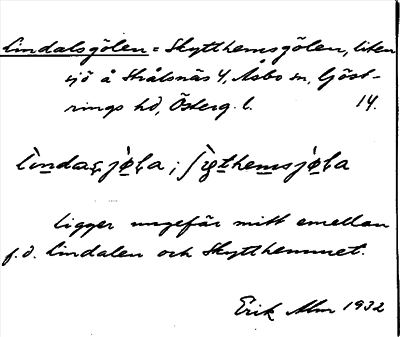 Lindalsgölen = Skytthemsgölen, liten
sjö å Strålsnäs 4, Åsbo sn, Göst-
rings hd, Österg. l. 14.
ligger ungefär mitt emellan
f.d. Lindalen och Skytthemmet.
Erik Alm 1932